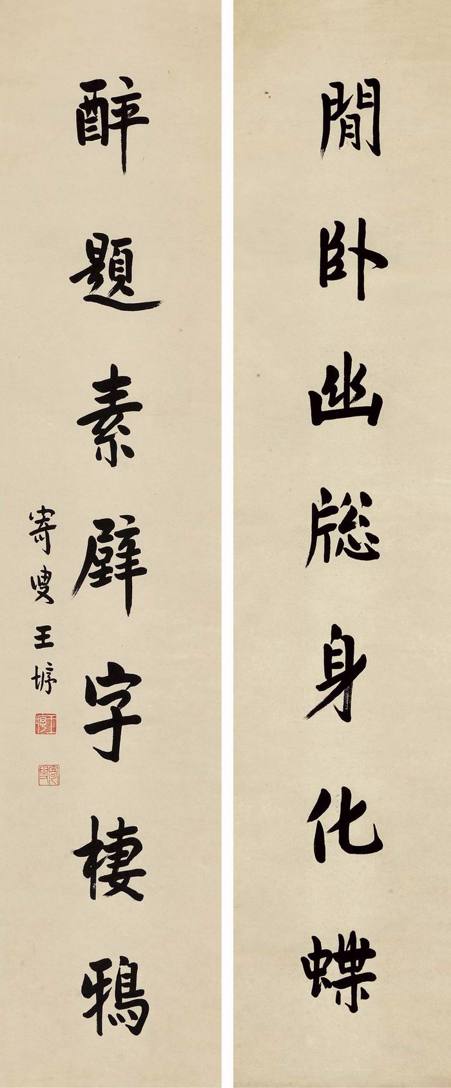 閒卧幽牕身化蝶
醉題素壁字棲鴉
寄叟王垿